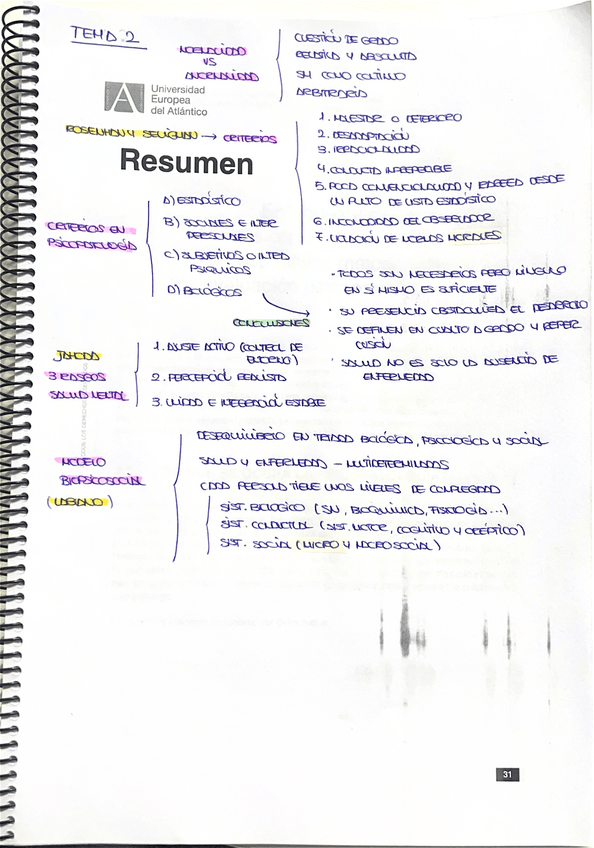 TEMA 2
NORMALIDAD
VS
ANORMALIDAD
CUESTIÓN DE GRADO
RELATIVA Y ABSOLUTA
SM COMO CONTINUO
ARBITRARIA
Universidad
Europea
del Atlántico
ROSENHAN Y SELIGMAN → CRITERIOS
1. MALESTAR O DETERIORO
2. DESADAPTACIÓN
3. IRRACIONALIDAD
4. CONDUCTA IMPREDECIBLE
5. POCA CONVENCIONALIDAD Y RAREZA DESDE
UN PUNTO DE VISTA ESTADÍSTICO
6. INCOMODIDAD DEL OBSERVADOR
7. VIOLACIÓN DE NORMAS MORALES
Resumen
CRITERIOS EN
PSICOPATOLOGÍA
A) ESTADÍSTICO
B) SOCIALES E INTER
PERSONALES
C) SUBJETIVOS O INTRA
PSIQUICOS
D) BIOLÓGICOS
CONCLUSIONES
· TODOS SON NECESARIOS PERO NINGUNO
EN SÍ MISMO ES SUFICIENTE
· SU PRESENCIA OBSTACULIZA EL DESARROLLO
· SE DEFINEN EN CUANTO A GRADO Y REPER
CUSIÓN
· SALUD NO ES SOLO LA AUSENCIA DE
ENFERMEDAD
JAHODA
3 RASGOS
SALUD MENTAL
1. AJUSTE ACTIVO (CONTROL DE
ENTORNO)
2. PERCEPCIÓN REALISTA
3. UNIDAD E INTEGRACIÓN ESTABLE
MODELO
BIOPSICOSOCIAL
(LABRADOR)
DESEQUILIBRIO EN TRIADA BIOLÓGICA, PSICOLOGICA Y SOCIAL
SALUD Y ENFERMEDAD - MULTIDETERMINADAS
CADA PERSONA TIENE UNOS NIVELES DE COMPLEJIDAD
SIST. BIOLOGICO (SN, BIOQUÍMICA, FISIOLOGÍA...)
SIST. CONDUCTUAL (SIST. MOTOR, COGNITIVO Y AFECTIVO)
SIST. SOCIAL (MICRO Y MACROSOCIAL)
31